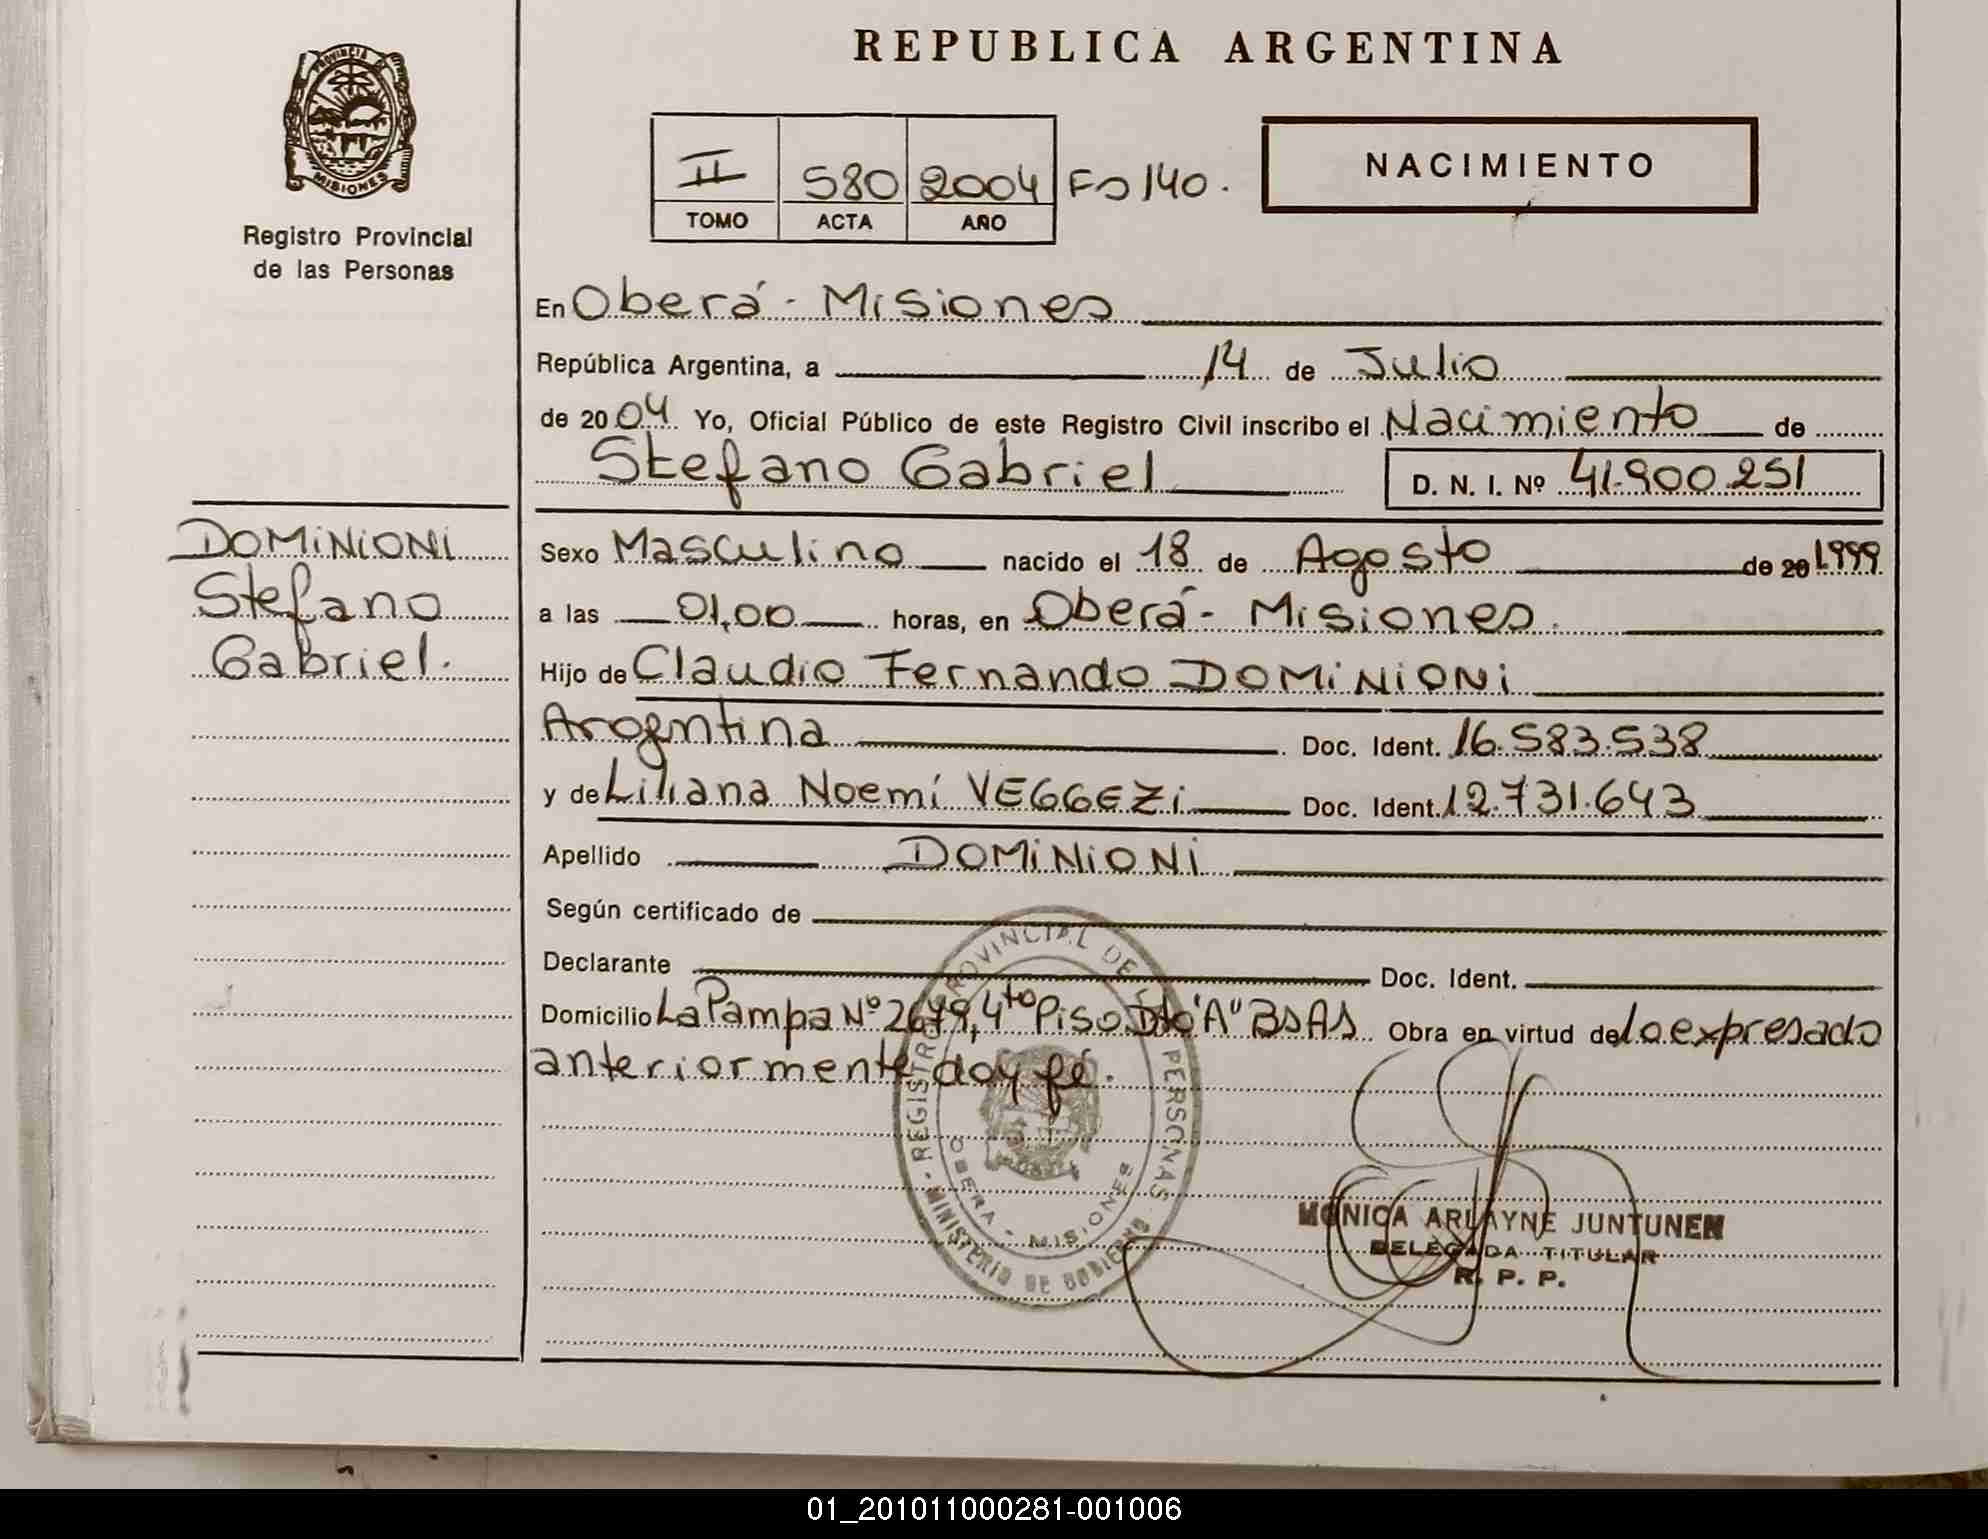 REPUBLICA ARGENTINA
PROVINCIA DE
MISIONES
Registro Provincial
de las Personas
II 580 2004 Fo 140.
TOMO ACTA AÑO
NACIMIENTO
En Oberá - Misiones
República Argentina, a 14 de Julio
de 2004 Yo, Oficial Público de este Registro Civil inscribo el Nacimiento de
Stefano Gabriel D. N. I. Nº 41.900.251
DOMiNiONi
Stefano
Gabriel.
Sexo Masculino nacido el 18 de Agosto de 20 1999
a las 01,00 horas, en Oberá - Misiones.
Hijo de Claudio Fernando DOMiNiONi
Argentina Doc. Ident. 16.583.538
y de Liliana Noemí VEGGEZi Doc. Ident. 12.731.643
Apellido DOMiNiONi
Según certificado de
Declarante Doc. Ident.
Domicilio La Pampa Nº 2679, 4to Piso Dto "A" Bs As Obra en virtud de lo expresado
anteriormente doy fé.
REGISTRO PROVINCIAL DE PERSONAS
OBERA - MISIONES
MINISTERIO DE GOBIERNO
MONICA ARLAYNE JUNTUNEN
DELEGADA TITULAR
R. P. P.
01_201011000281-001006